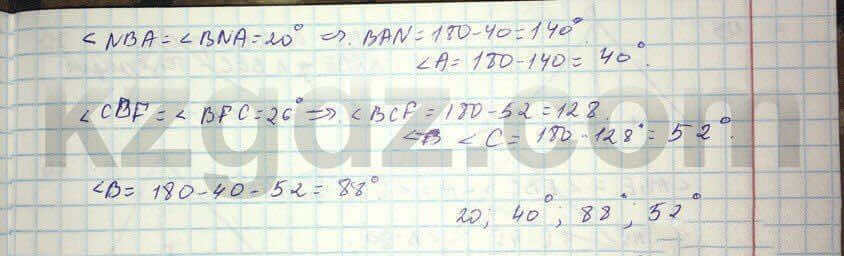 ∠NBA = ∠BNA = 20° ⇒. BAN = 180-40 = 140°
∠A = 180-140 = 40°.
∠CBF = ∠BFC = 26° ⇒. ∠BCF = 180-52 = 128.
∠C = 180-128° = 52°.
∠B = 180-40-52 = 88°
20; 40°; 88°; 52°
kzgdz.com